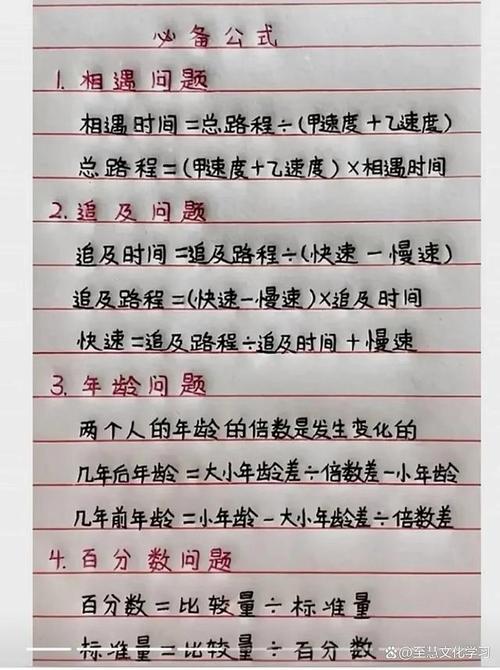 必备公式
1. 相遇问题
相遇时间=总路程÷(甲速度+乙速度)
总路程=(甲速度+乙速度)×相遇时间
2. 追及问题
追及时间=追及路程÷(快速-慢速)
追及路程=(快速-慢速)×追及时间
快速=追及路程÷追及时间+慢速
3. 年龄问题
两个人的年龄的倍数是发生变化的
几年后年龄=大小年龄差÷倍数差-小年龄
几年前年龄=小年龄-大小年龄差÷倍数差
4. 百分数问题
百分数=比较量÷标准量
标准量=比较量÷百分数
@至慧文化学习